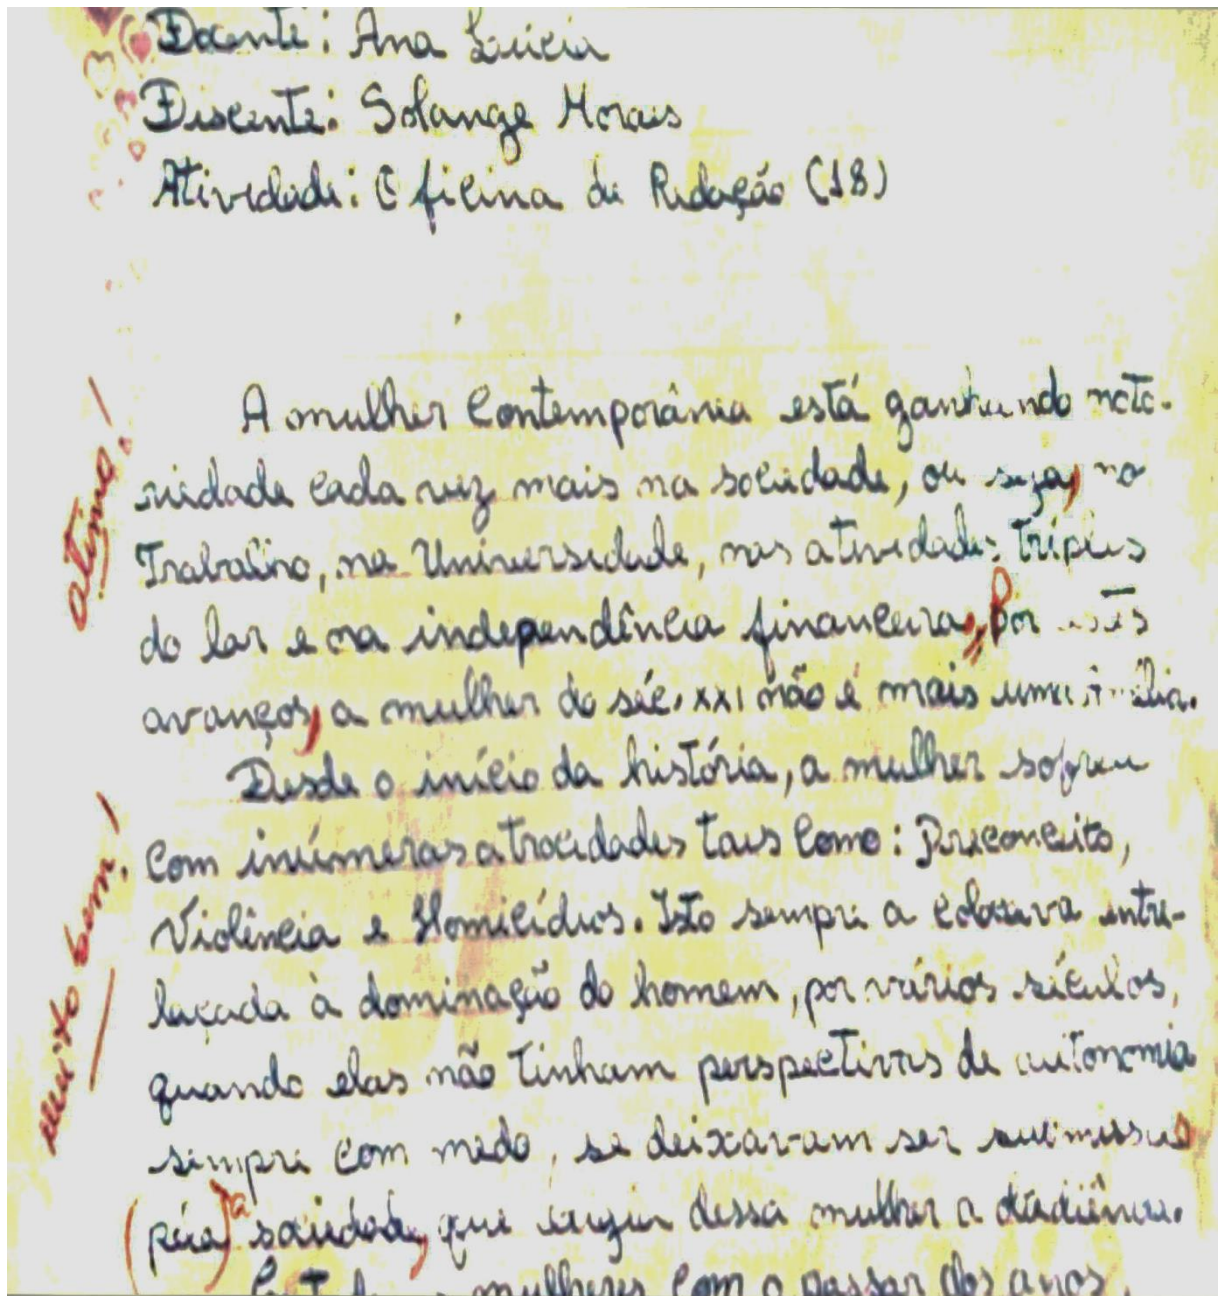 Docente: Ana Lúcia
Discente: Solange Morais
Atividade: Oficina de Redação (18)
A mulher Contemporânea está ganhando noto-
riedade cada vez mais na sociedade, ou seja, no
Trabalho, na Universidade, nas atividades triplas
do lar e na independência financeira, Por estes
avanços, a mulher do séc. XXI não é mais uma
Desde o início da história, a mulher sofreu
Com inúmeras atrocidades tais Como: Preconceito,
Violência e Homicídios. Isto sempre a colocava entre-
laçada à dominação do homem, por vários séculos,
quando elas não tinham perspectivas de autonomia
sempre com medo, se deixavam ser submissas
(pela) a sociedade, que exigia dessa mulher a obediência.
mulheres com o passar dos anos,
ótimo!
muito bem!